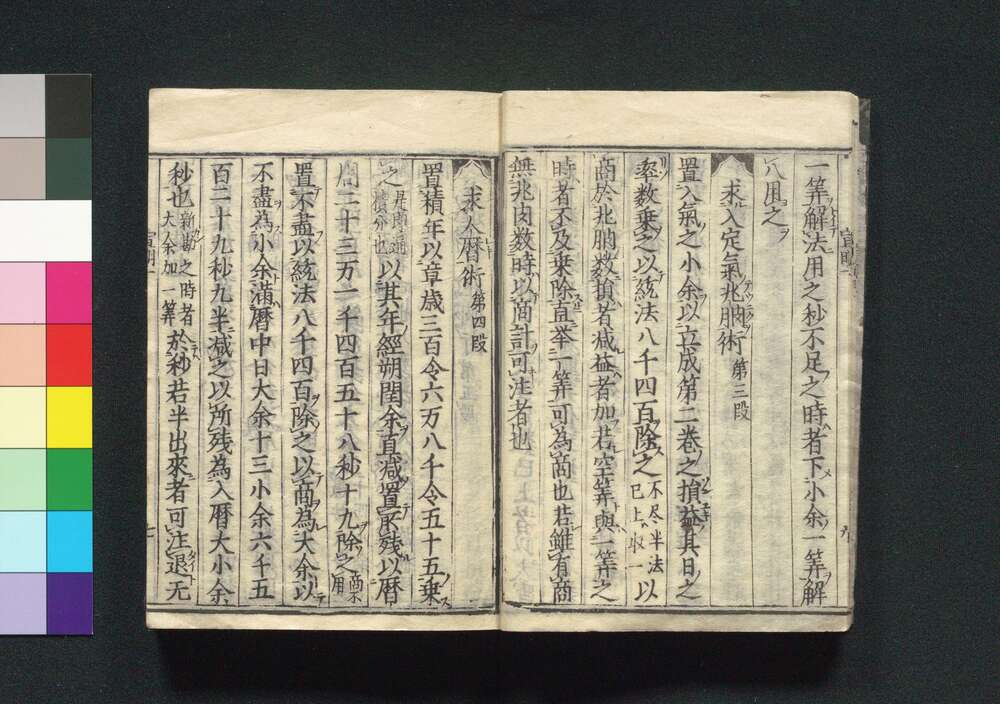 一筭解法用之秒不足之時者下小余一筭解
八用之
求入定氣兆朒術 第三段
置入氣之小余以立成第二卷之損益其日之
率数乗之以統法八千四百除之 不尽半法 已上收一 以
商於兆朒数損者减益者加若空筭與一筭之
時者不及乗除直举一筭可為商也若雖有商
無兆肉数時以商計可注者也
求入暦術 第四段
置積年以章歳三百令六万八千令五十五乗
之 是略通 積分也 以其年經朔閏余直减置所残以暦
周二十三万一千四百五十八秒十九除之 商不 用
置不盡以統法八千四百除之以商為大余以
不盡為小余滿暦中日大余十三小余六千五
百二十九秒九半减之以所残為入暦大小余
秒也 新勘之時者 大余加一筭 於秒若半出來者可注退无